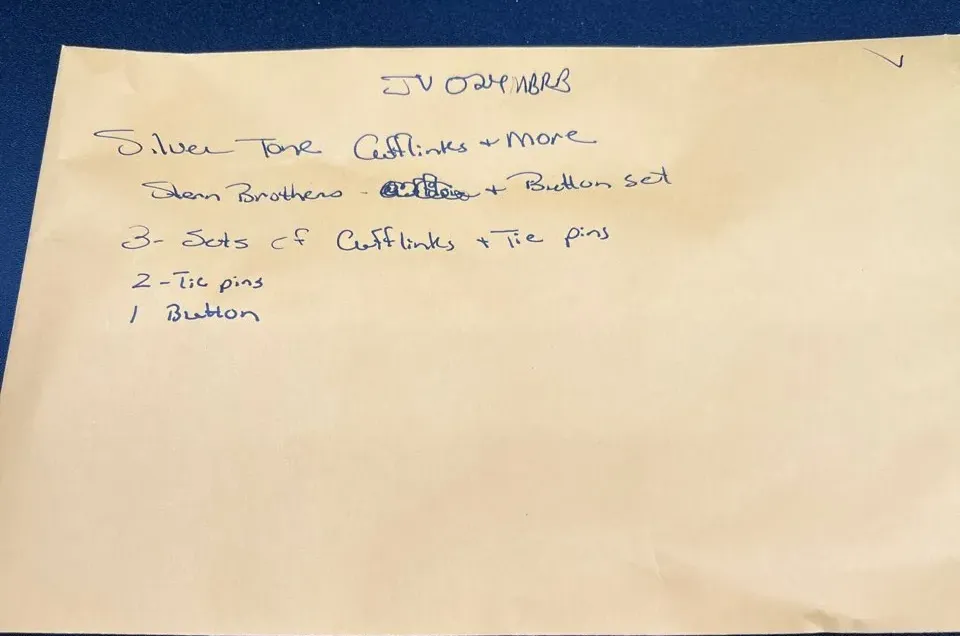 JV 024NBRB
Silver Tone Cufflinks + More
Stern Brothers - + Button set
3- Sets of Cufflinks + Tie pins
2 - Tie pins
1 Button